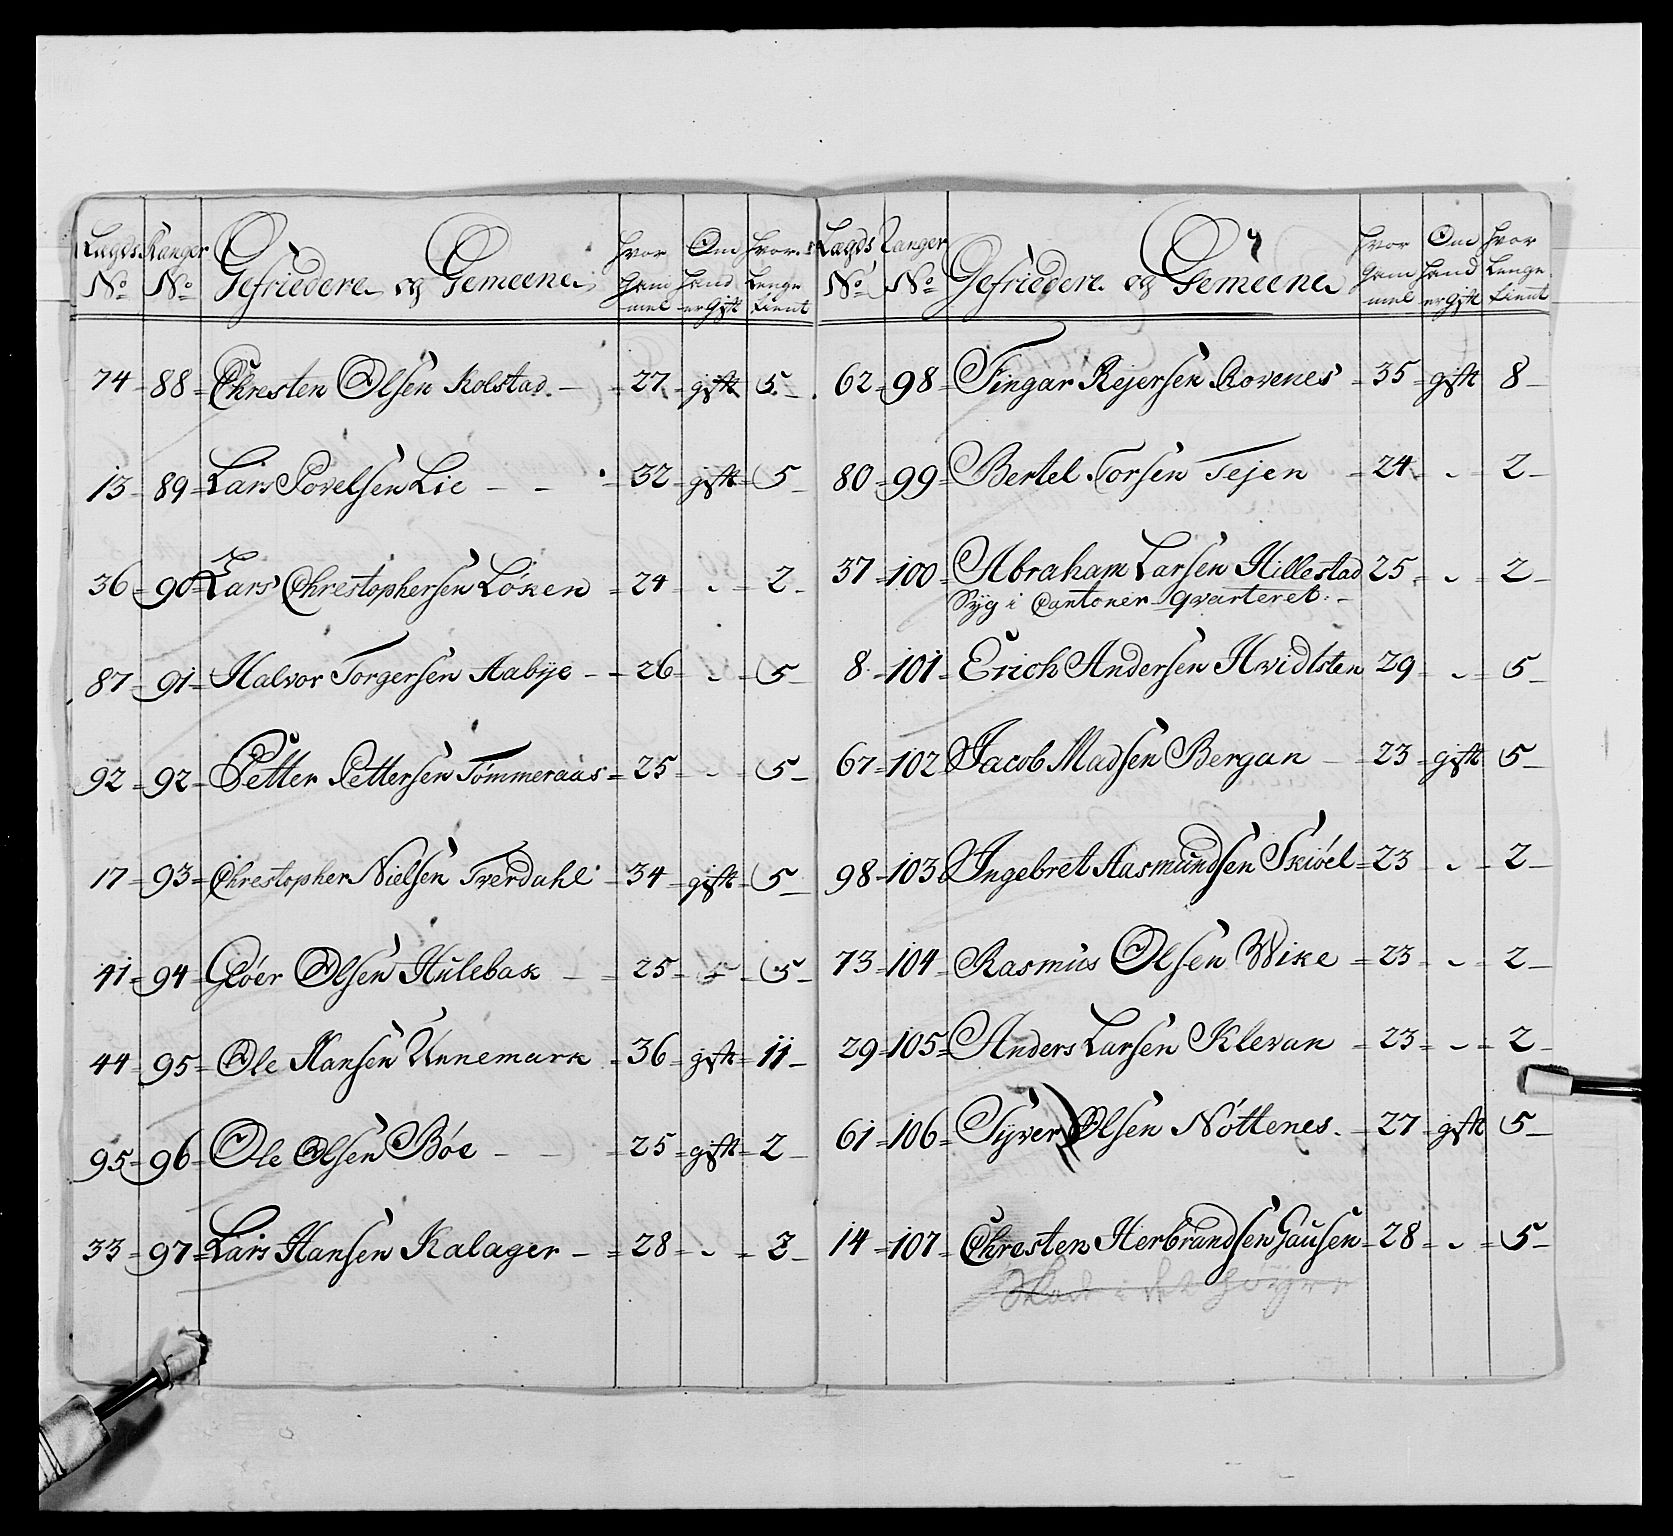 Lægds No Ranger No Gefriedere og Gemeene hvor gam mel Om hand er gift hvor Lenge tient
74 - 88 - Chresten Olsen Kolstad - 27 - gift 5 -
13 - 89 - Lars Povelsen Lie - - 32 - gift - 5 -
36 - 90 - Lars Chrestophersen Löken - 24 - „ - 2 -
87 - 91 - Halvor Torgersen Aabye - - 26 - „ - 5 -
92 - 92 - Petter Pettersen Tömmeraas - 25 - „ - 5 -
17 - 93 - Chrestopher Nielsen Tverdahl - 34 - gift - 5 -
41 - 94 Glöer Olsen Hulebak - 25 - 5 -
44 - 95 - Ole Hansen Unnemark - 36 - gift - 11 -
95 - 96 - Ole Olsen Böe - - 25 - gift - 2 -
33 - 97 - Lars Hansen Kalager - - 28 - „ - 2 -
Lægds No Ranger No Gefriedere og Gemeene hvor gam mel Om hand er gift hvor Lenge tient
62 - 98 - Fingar Rejersen Rovenes - 35 - gift 8 -
80 - 99 - Bertel Torsen Tejen - 24 - „ - 2 -
37 - 100 - Abraham Larsen Hillestad 25 - „ - 2 -
Syg i Cantoner qvarteret. -
8 - 101 - Erich Andersen Hvidtsten 29 - „ - 5 -
67 - 102 Jacob Madsen Bergan - 23 - gift 5 -
98 - 103 Ingebret Aasmundsen Skiöel - 23 - „ - 2 -
73 - 104 - Rasmus Olsen Wike - 23 - „ - 2 -
29 - 105 - Anders Larsen Klevan - 23 - „ - 2 -
61 - 106 - Syver Olsen Nöttenes. - 27 - gift 5 -
14 - 107 - Chresten Herbrandsen Gausen - 28 - „ - 5 -